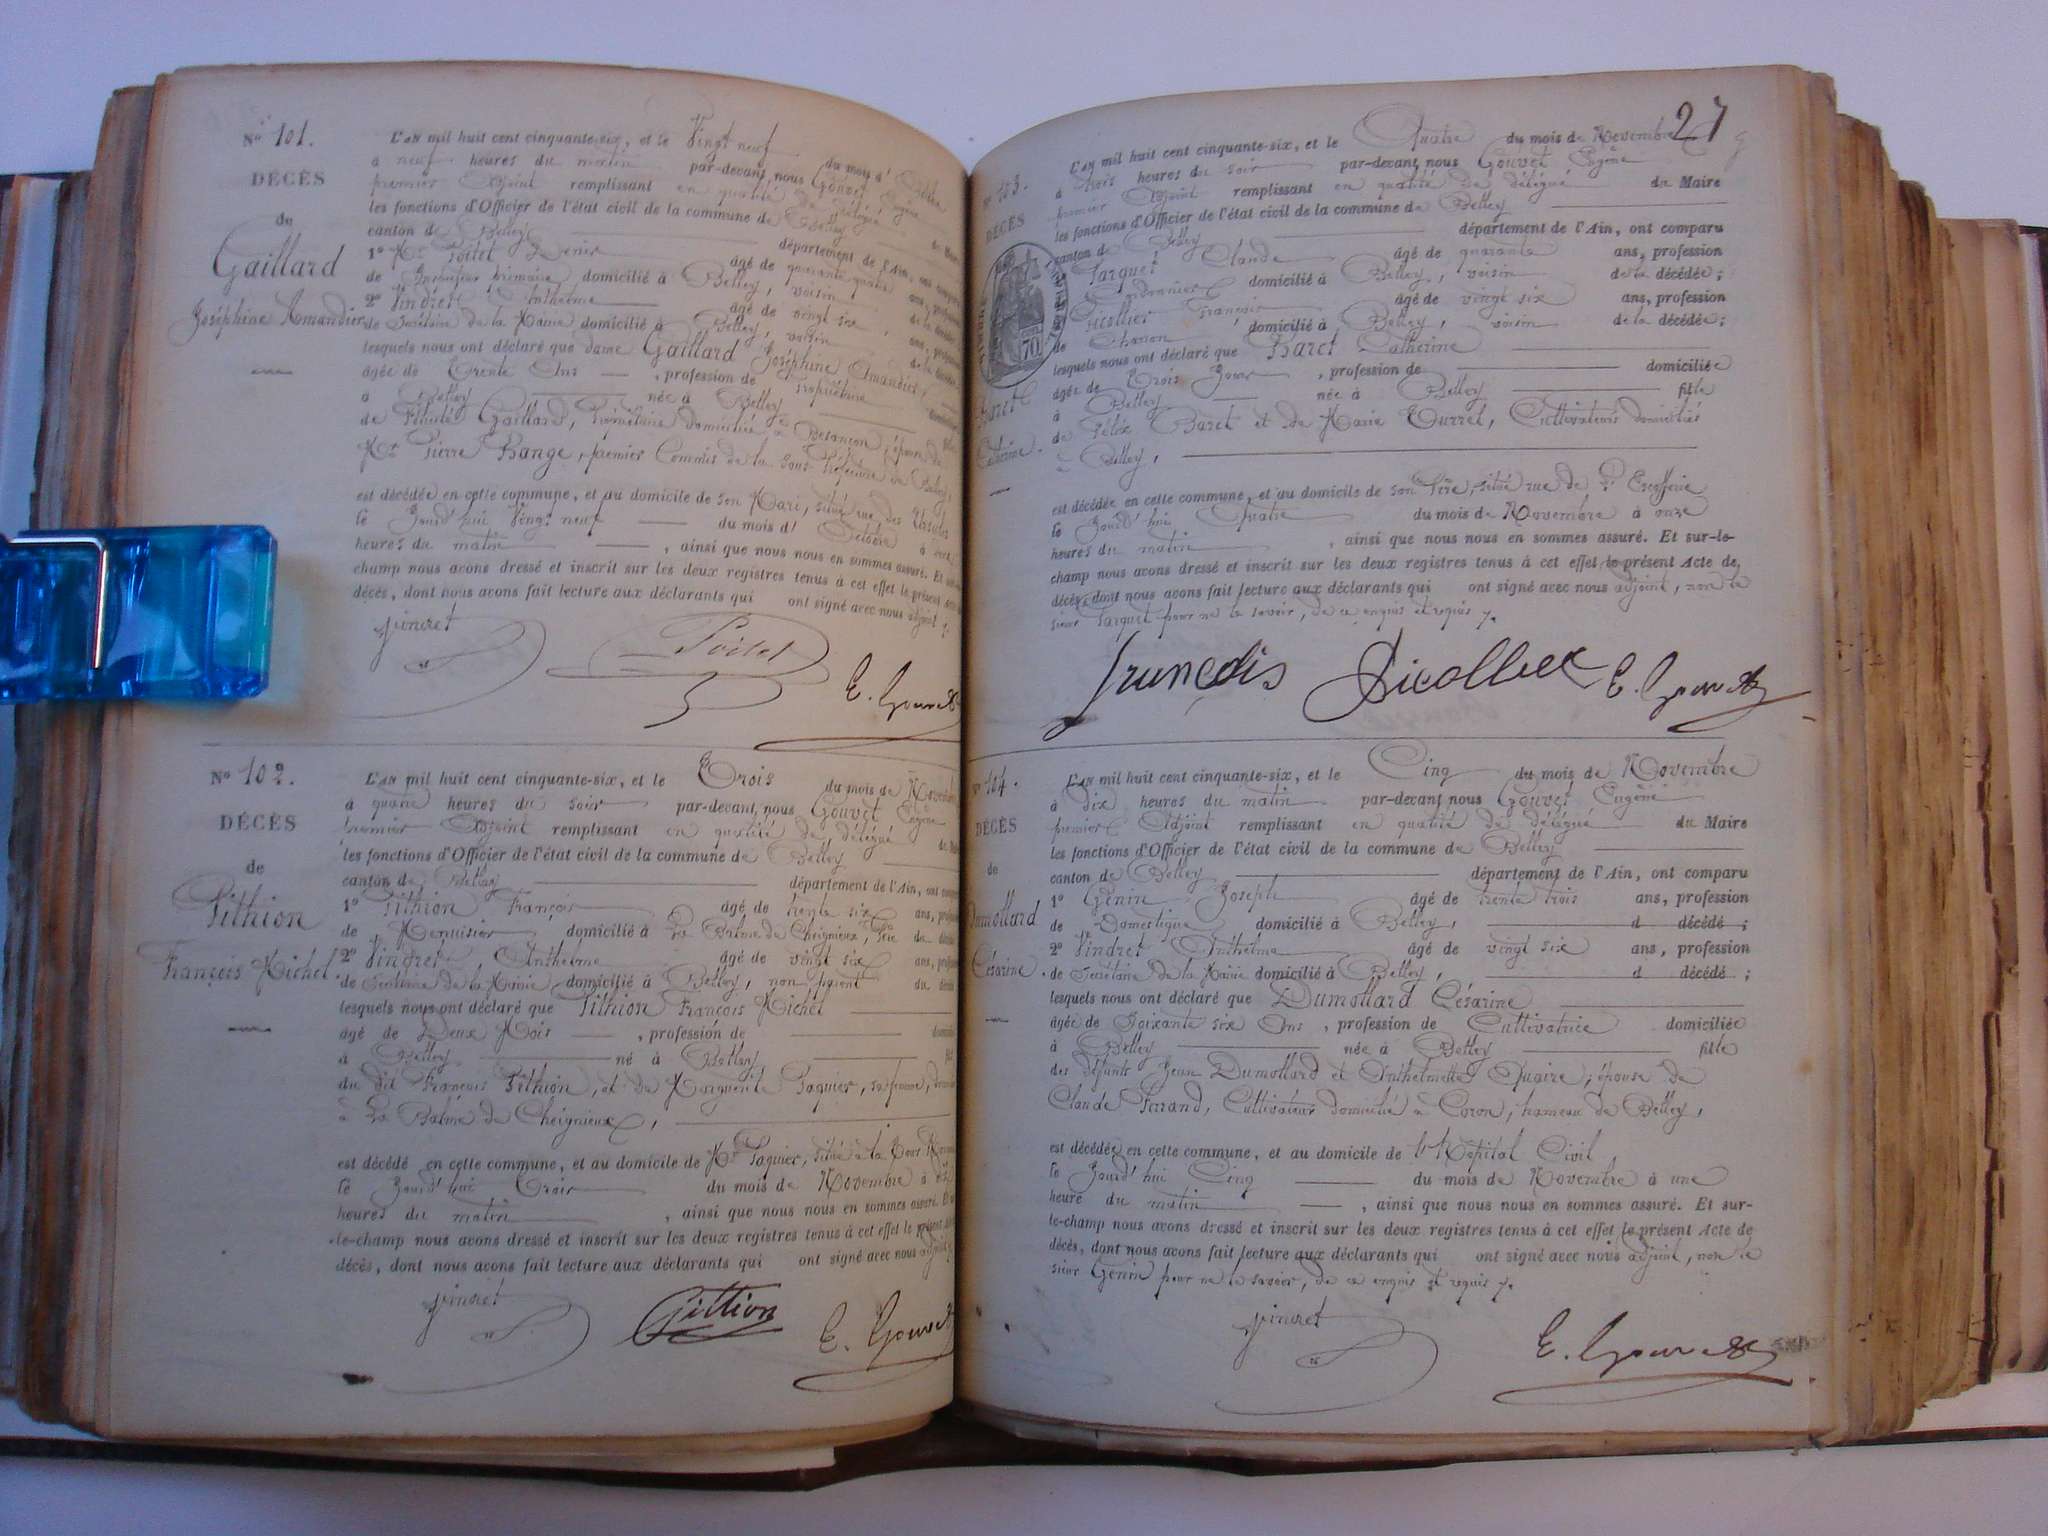 No 101.
DÉCÈS
de
Gaillard
Joséphine Amandier
L'an mil huit cent cinquante-six, et le Vingt neuf du mois d'
à neuf heures du matin par-devant nous Gouvet Eugène
premier Adjoint remplissant en qualité de délégué
les fonctions d'Officier de l'état civil de la commune de Belley
canton de Belley département de l'Ain, ont
1º Mr Poitet âgé de quarante quatre ans,
de Instituteur primaire domicilié à Belley, voisin
2º Vindret Anthelme âgé de vingt six ans,
de Secrétaire de la Mairie domicilié à Belley, voisin de la
lesquels nous ont déclaré que dame Gaillard Joséphine Amandier,
âgée de Trente Ans, profession de
à Belley née à Belley
de Félicité Gaillard, domiciliée à Besançon, épouse de
Mr Pierre Bange, premier Commis de la Sous Préfecture de Belley,
est décédée en cette commune, et au domicile de son Mari, situé rue des
le Jourd'hui Vingt neuf du mois d'Octobre à
heures du matin, ainsi que nous nous en sommes assuré. Et
champ nous avons dressé et inscrit sur les deux registres tenus à cet effet le présent
décès, dont nous avons fait lecture aux déclarants qui ont signé avec nous adjoint
Vindret Poitet E. Gouvet
No 102.
DÉCÈS
de
Pithion
François Michel.
L'an mil huit cent cinquante-six, et le Trois du mois de
à quatre heures du soir par-devant nous Gouvet Eugène
premier Adjoint remplissant en qualité de délégué
les fonctions d'Officier de l'état civil de la commune de Belley
canton de Belley département de l'Ain, ont
1º Pithion François âgé de trente six ans,
de Menuisier domicilié à La Balme de Cheignieux,
2º Vindret Anthelme âgé de vingt six ans,
de Secrétaire de la Mairie, domicilié à Belley, non parent
lesquels nous ont déclaré que Pithion François Michel
âgé de Deux Mois, profession de
à Belley né à Belley
du dit François Pithion, et de Marguerite Paquier, sa femme,
à La Balme de Cheignieux,
est décédé en cette commune, et au domicile de Mr Paquier, situé à la
le Jourd'hui Trois du mois de Novembre à
heures du matin, ainsi que nous nous en sommes assuré.
le-champ nous avons dressé et inscrit sur les deux registres tenus à cet effet le présent
décès, dont nous avons fait lecture aux déclarants qui ont signé avec nous adjoint
Vindret Pittion E. Gouvet
27
103.
DÉCÈS
Baret
Catherine.
L'an mil huit cent cinquante-six, et le Quatre du mois de Novembre
à trois heures du soir par-devant nous Gouvet Eugène
premier Adjoint remplissant en qualité de délégué du Maire
les fonctions d'Officier de l'état civil de la commune de Belley
canton de Belley département de l'Ain, ont comparu
Parquet Claude âgé de quarante ans, profession
Cordonnier domicilié à Belley, voisin de la décédée;
Sicollier François âgé de vingt six ans, profession
de Charron domicilié à Belley, voisin de la décédée;
lesquels nous ont déclaré que Baret Catherine
âgée de Trois Jours, profession de domiciliée
à Belley née à Belley fille
de Félix Baret et de Marie Curret, Cultivateurs domiciliés
à Belley,
est décédée en cette commune, et au domicile de son Père, situé rue de
le Jourd'hui Quatre du mois de Novembre à onze
heures du matin, ainsi que nous nous en sommes assuré. Et sur-le-
champ nous avons dressé et inscrit sur les deux registres tenus à cet effet le présent Acte de
décès, dont nous avons fait lecture aux déclarants qui ont signé avec nous adjoint, non le
sieur Parquet pour ne le savoir, de ce enquis et requis
François Sicollier E. Gouvet
No 104.
DÉCÈS
de
Dumollard
Césarine.
L'an mil huit cent cinquante-six, et le Cinq du mois de Novembre
à dix heures du matin par-devant nous Gouvet Eugène
premier Adjoint remplissant en qualité de délégué du Maire
les fonctions d'Officier de l'état civil de la commune de Belley
canton de Belley département de l'Ain, ont comparu
1º Génin Joseph âgé de trente trois ans, profession
de Domestique domicilié à Belley, d décédé ;
2º Vindret Anthelme âgé de vingt six ans, profession
de Secrétaire de la Mairie domicilié à Belley, d décédé ;
lesquels nous ont déclaré que Dumollard Césarine
âgée de Soixante six Ans, profession de Cultivatrice domiciliée
à Belley née à Belley fille
des défunts Jean Dumollard et Anthelmette Quaire, épouse de
Claude Ferrand, Cultivateur domicilié à Coron, hameau de Belley,
est décédée en cette commune, et au domicile de l'Hôpital Civil
le Jourd'hui Cinq du mois de Novembre à une
heure du matin, ainsi que nous nous en sommes assuré. Et sur-
le-champ nous avons dressé et inscrit sur les deux registres tenus à cet effet le présent Acte de
décès, dont nous avons fait lecture aux déclarants qui ont signé avec nous adjoint, non le
sieur Génin pour ne le savoir, de ce enquis et requis
Vindret E. Gouvet